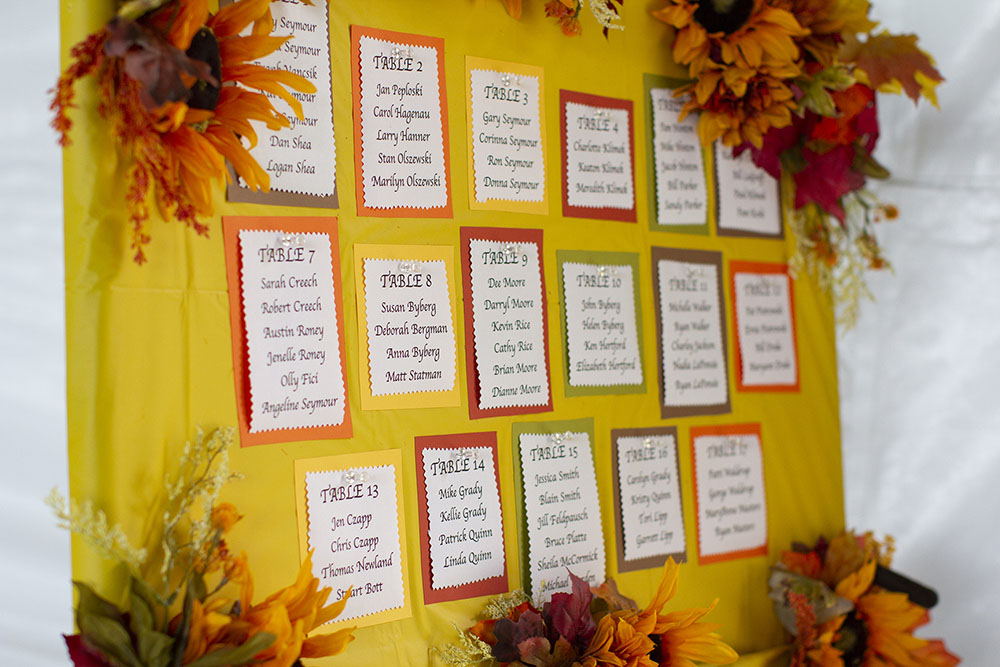 Seymour
Seymour
Dan Shea
Logan Shea
TABLE 2
Jan Peploski
Carol Hagenau
Larry Hanner
Stan Olszewski
Marilyn Olszewski
TABLE 3
Gary Seymour
Corinna Seymour
Ron Seymour
Donna Seymour
TABLE 4
Charlotte Klimek
Keaton Klimek
Meredith Klimek
Bill Parker
Sandy Parker
TABLE 7
Sarah Creech
Robert Creech
Austin Roney
Jenelle Roney
Olly Fici
Angeline Seymour
TABLE 8
Susan Byberg
Deborah Bergman
Anna Byberg
Matt Statman
TABLE 9
Dee Moore
Darryl Moore
Kevin Rice
Cathy Rice
Brian Moore
Dianne Moore
TABLE 10
John Byberg
Helen Byberg
Ken Hertford
Elizabeth Hertford
TABLE 11
Michelle Walker
Ryan Walker
Charley Jackson
Nadia LaPointe
Ryan LaPointe
TABLE 12
TABLE 13
Jen Czapp
Chris Czapp
Thomas Newland
Stuart Bott
TABLE 14
Mike Grady
Kellie Grady
Patrick Quinn
Linda Quinn
TABLE 15
Jessica Smith
Blain Smith
Jill Feldpausch
Bruce Platte
Sheila McCormick
Michael
TABLE 16
Carolyn Grady
Kristy Quinn
Tori Lipp
Garrett Lipp
TABLE 17
Patti Waldrop
George Waldrop
MaryBeene Masters
Ryan Masters